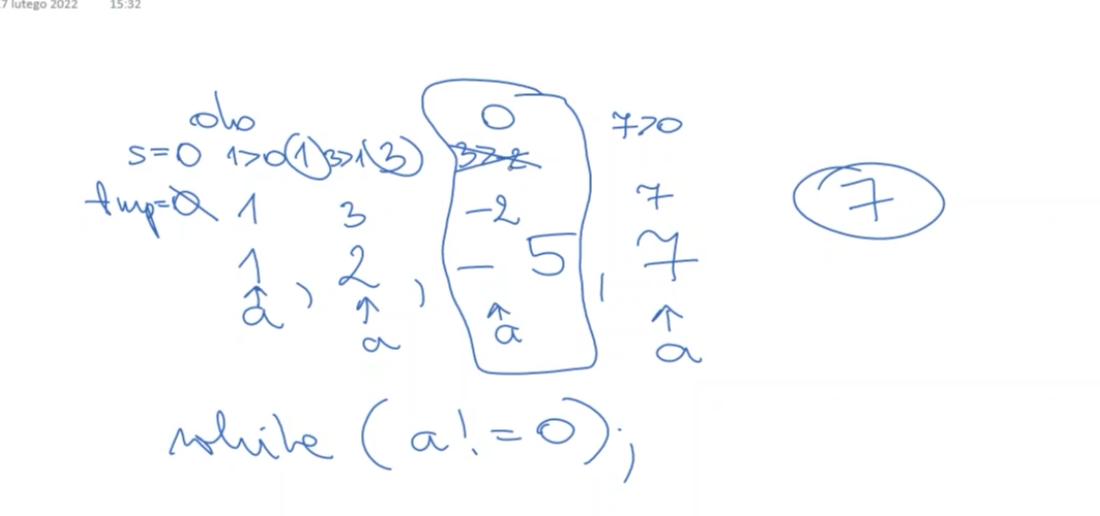 7 lutego 2022 15:32
do 0 7>0
s=0 1>0 1 3>1 3
tmp=0 1 3 -2 7 7
1, 2, -5, 7
a a a a
while (a!=0);